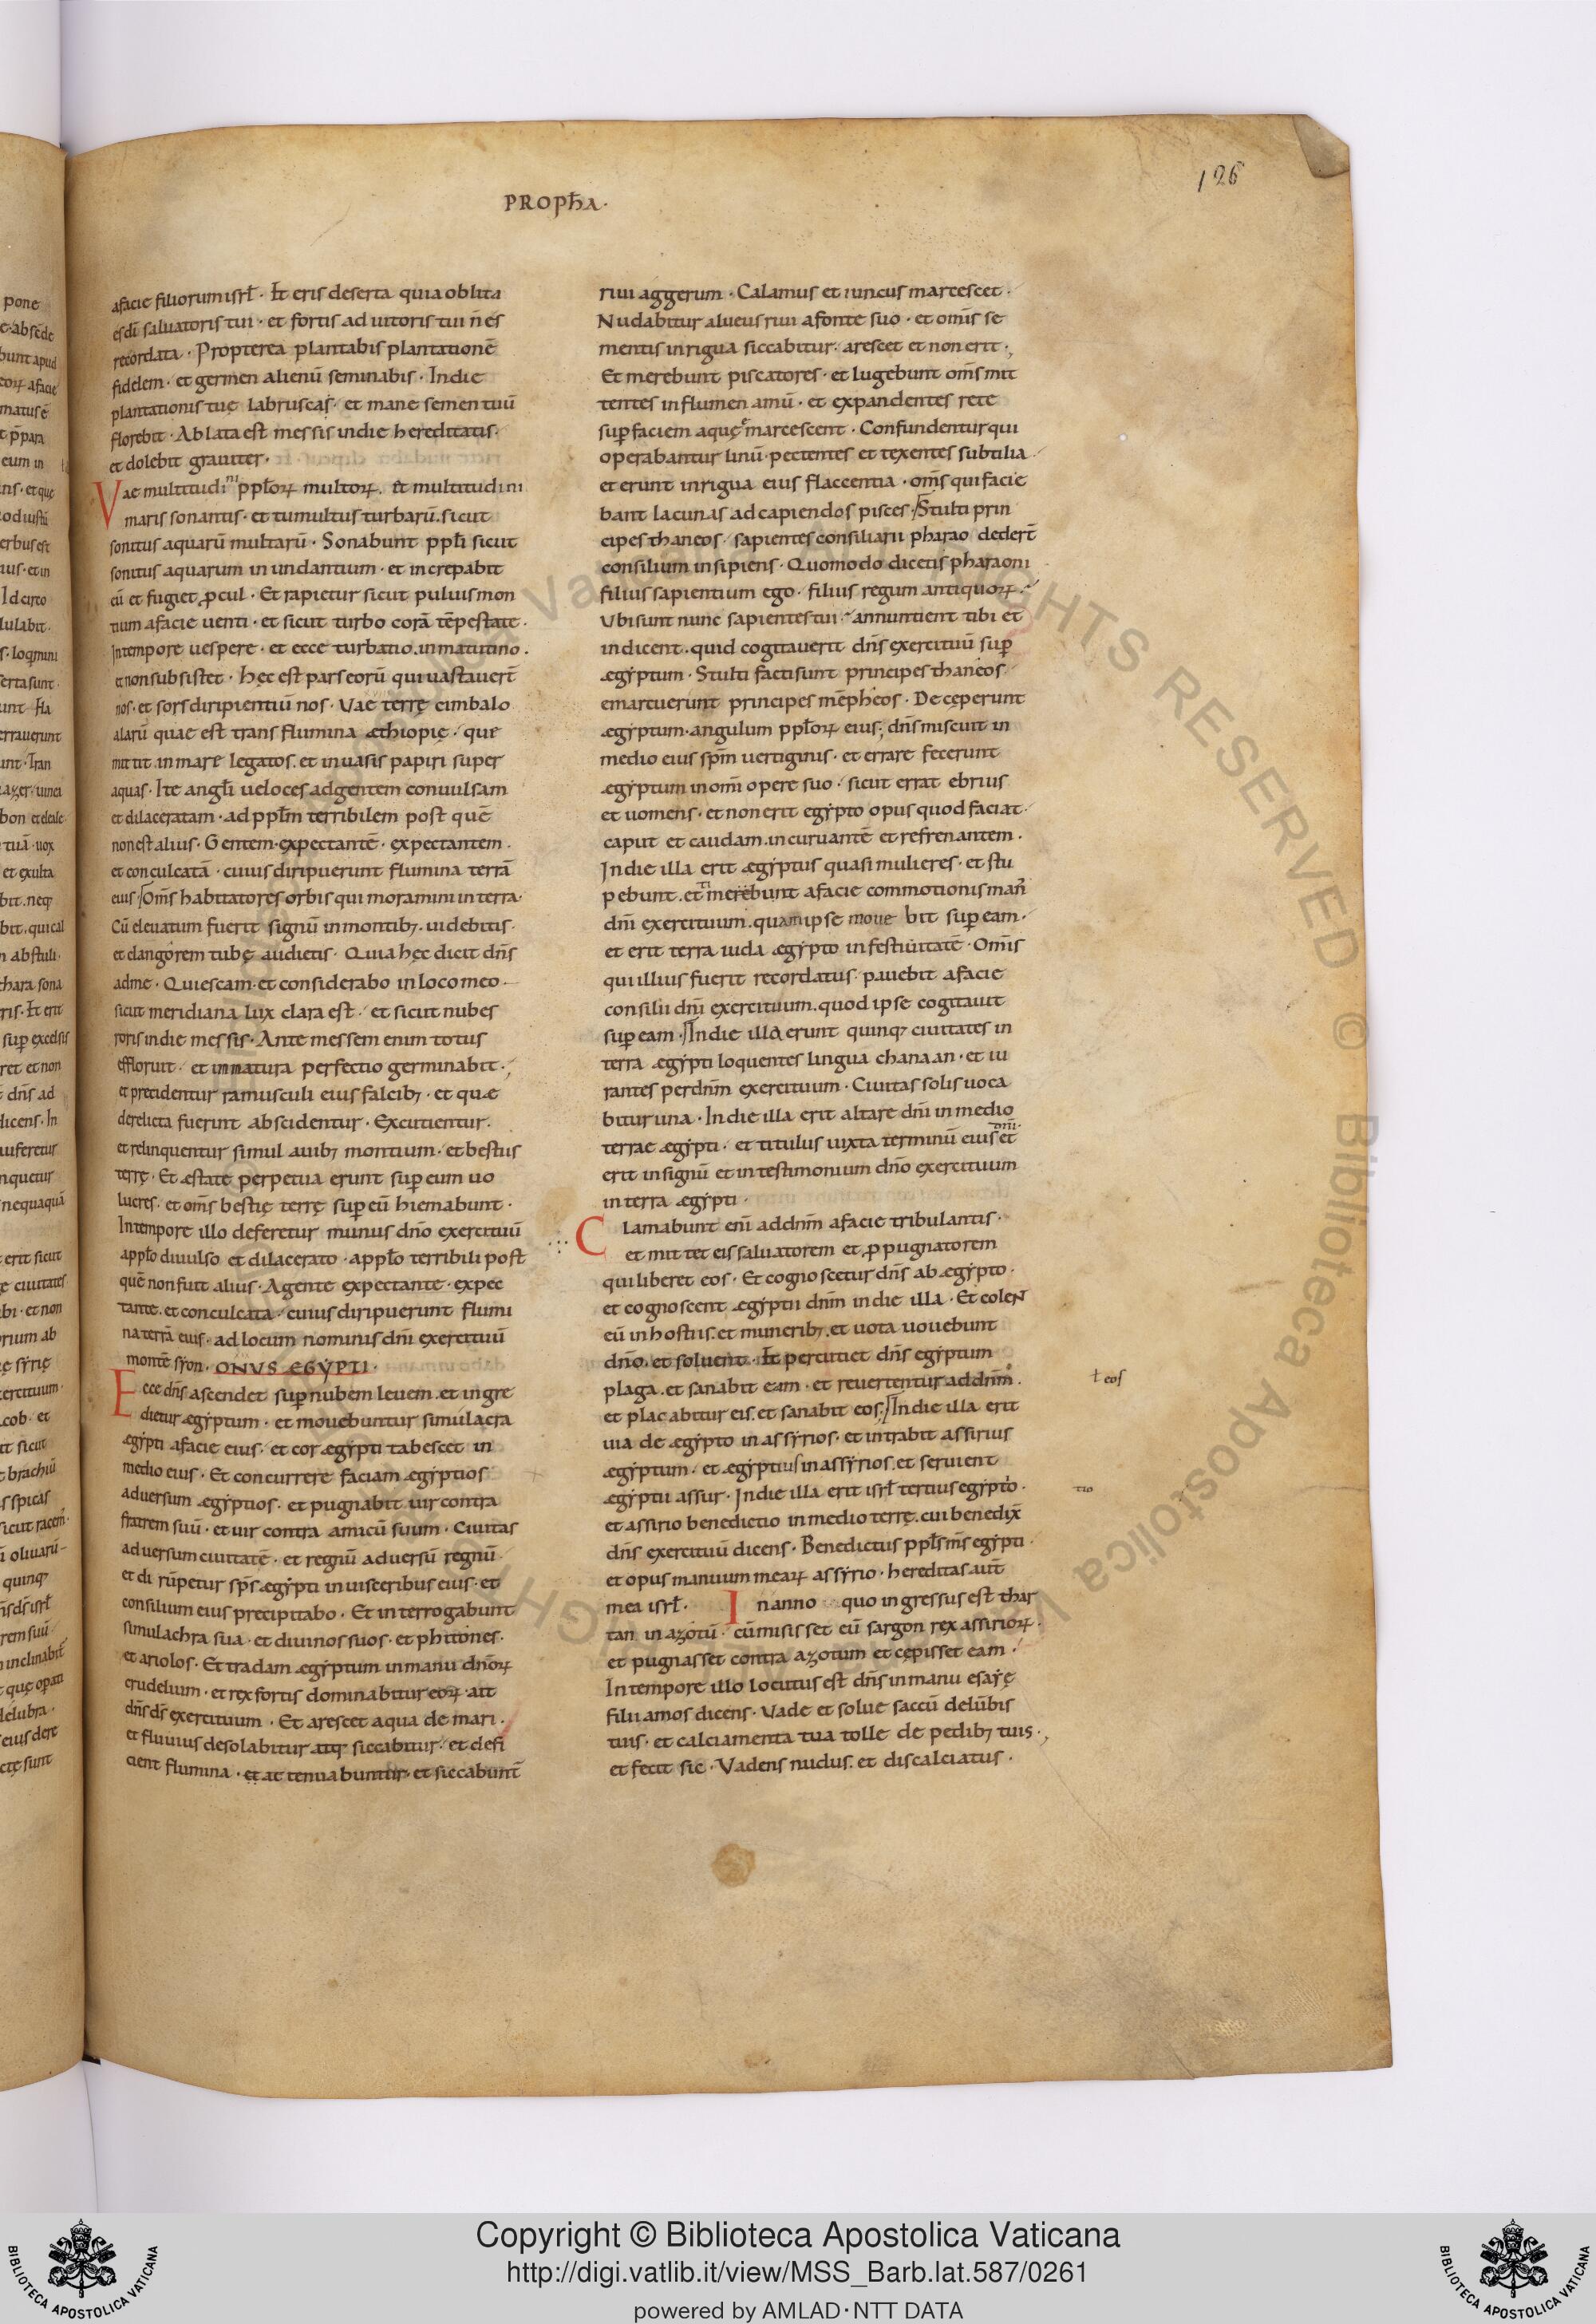 PROPħA·
126
afacie filiorum isrł · Et eris deserta quia oblita
es dī saluatoris tui · et fortis adiutoris tui ñ es
recordata · Propterea plantabis plantationē
fidelem · et germen alienū seminabis · In die
plantationis tuę labruscas · et mane semen tuū
florebit · Ablata est messis in die hereditatis ·
et dolebit grauiter ·
Vae multitudini ppłorꝝ multorꝝ · ut multitudini
maris sonantis · et tumultus turbarū · sicut
sonitus aquarū multarū · Sonabunt ppłi sicut
sonitus aquarum inundantium · et increpabit
eū et fugiet ꝓcul · Et rapietur sicut puluis mon
tium afacie uenti · et sicut turbo corā tēpestate ·
In tempore uespere · et ecce turbatio · in matutino ·
et non subsistet · Hęc est pars eorū qui uastauerт̄
nos · et sors diripientiū nos · Vae terrę cimbalo
alarū quae est trans flumina æthiopię · que
mittit in mare legatos · et in uasis papiri super
aquas · Ite angłi ueloces ad gentem conuulsam
et dilaceratam · ad ppłm terribilem post quē
non est alius · Gentem expectantē · expectantem ·
et conculcatā · cuius diripuerunt flumina terrā
eius · Om̄s habitatores orbis qui moramini in terra ·
Cū eleuatum fuerit signū in montibꝫ · uidebitis ·
et clangorem tubę audietis · Quia hęc dicit dn̄s
ad me · Quiescam · et considerabo in loco meo
sicut meridiana lux clara est · et sicut nubes
roris in die messis · Ante messem enim totus
effloruit · et inmatura perfectio germinabit ·
et precidentur ramusculi eius falcibꝫ · et quæ
derelicta fuerint abscidentur · Excutientur ·
et relinquentur simul auibꝫ montium · et bestiis
terrę · Et æstate perpetua erunt super eum uo
lucres · et om̄s bestię terrę suꝑ eū hiemabunt ·
In tempore illo deferetur munus dn̄o exercituū
appło diuulso et dilacerato · appło terribili post
quē non fuit alius · Agente expectante · expec
tante · et conculcata · cuius diripuerunt flumi
na terrā eius · ad locum nominis dn̄i exercituū
montē syon · ONUS ÆGYPTI ·
Ecce dn̄s ascendet suꝑ nubem leuem · et ingre
dietur ægyptum · et mouebuntur simulacra
ægypti afacie eius · et cor ægypti tabescet in
medio eius · Et concurrere faciam ægyptios
aduersum ægyptios · et pugnabit uir contra
fratrem suū · et uir contra amicū suum · Ciuitas
aduersum ciuitatē · et regnū aduersū regnū
et dirūpetur sp̄s ægypti in uisceribus eius · et
consilium eius precipitabo · Et interrogabunt
simulachra sua · et diuinos suos · et phitones ·
et ariolos · Et tradam ægyptum in manu dn̄orꝝ
crudelium · et rex fortis dominabitur eorꝝ · ait
dn̄s ds̄ exercituum · Et arescet aqua de mari ·
et fluuius desolabitur atqꝫ siccabitur · et defi
cient flumina · et attenuabuntur · et siccabunт̄
riui aggerum · Calamus et iuncus marcescet ·
Nudabitur alueus riui afonte suo · et om̄is se
mentis inrigua siccabitur · arescet et non erit ·
Et merebunt piscatores · et lugebunt om̄s mit
tentes in flumen amū · et expandentes rete
suꝑ faciem aquę marcescent · Confundentur qui
operabantur linū · pectentes et texentes subtilia
et erunt inrigua eius flaccentia · om̄s qui facie
bant lacunas ad capiendos pisces · Stulti prin
cipes thaneos · sapientes consiliarii pharao dederт̄
consilium insipiens · Quomodo dicetis pharaoni
filius sapientium ego · filius regum antiquorꝝ ·
Vbi sunt nunc sapientes tui · annuntient tibi et
indicent · quid cogitauerit dn̄s exercituū suꝑ
ægyptum · Stulti facti sunt principes thaneos
emarcuerunt principes mēpheos · Deceperunt
ægyptum · angulum ppłorꝝ eius · dn̄s miscuit in
medio eius spm̄ uertiginis · et errare fecerunt
ægyptum in om̄i opere suo · sicut errat ebrius
et uomens · et non erit egypto opus quod faciat ·
caput et caudam · incuruantē et refrenantem ·
In die illa erit ægyptus quasi mulieres · et stu
pebunt · et timebunt afacie commotionis man̄
dn̄i exercituum · quam ipse mouebit suꝑ eam ·
et erit terra iuda ægypto in festiuitatē · Om̄is
qui illius fuerit recordatus pauebit afacie
consilii dn̄i exercituum · quod ipse cogitauit
suꝑ eam · In die illa erunt quinqꝫ ciuitates in
terra ægypti loquentes lingua chanaan · et iu
rantes per dn̄m exercituum · Ciuitas solis uoca
bitur una · In die illa erit altare dn̄i in medio
terrae ægypti · et titulus iuxta terminū eius dn̄i · et
erit in signū et in testimonium dn̄o exercituum
in terra ægypti ·
Clamabunt enī ad dn̄m afacie tribulantis ·
et mittet eis saluatorem et ꝓpugnatorem
qui liberet eos · Et cognoscetur dn̄s ab ægypto ·
et cognoscent ægyptii dn̄m in die illa · Et coleN
eū in hostiis · et muneribꝫ · et uota uouebunt
dn̄o · et soluent · Et percutiet dn̄s egyptum
plaga · et sanabit eam · et reuertentur ad dn̄m ·
ł eos
et placabitur eis · et sanabit eos · In die illa erit
uia de ægypto in assyrios · et intrabit assirius
ægyptum · et ægyptius in assyrios · et seruient
ægyptii assur · In die illa erit isrł tertius egypto ·
tio
et assirio benedictio in medio terrę · cui benedix̄
dn̄s exercituū dicens · Benedictus ppłs m̄s egypti ·
et opus manuum mearꝝ assyrio · hereditas aut̄
mea isrł · In anno quo ingressus est thar
tan in azotū · cū misisset eū sargon rex assiriorꝝ ·
et pugnasset contra azotum et cepisset eam ·
In tempore illo locutus est dn̄s in manu esayę
filii amos dicens · Vade et solue saccū de lūbis
tuis · et calciamenta tua tolle de pedibꝫ tuis ·
et fecit sic · Vadens nudus · et discalciatus ·
Copyright © Biblioteca Apostolica Vaticana
http://digi.vatlib.it/view/MSS_Barb.lat.587/0261
powered by AMLAD·NTT DATA
BIBLIOTECA APOSTOLICA VATICANA
BIBLIOTECA APOSTOLICA VATICANA